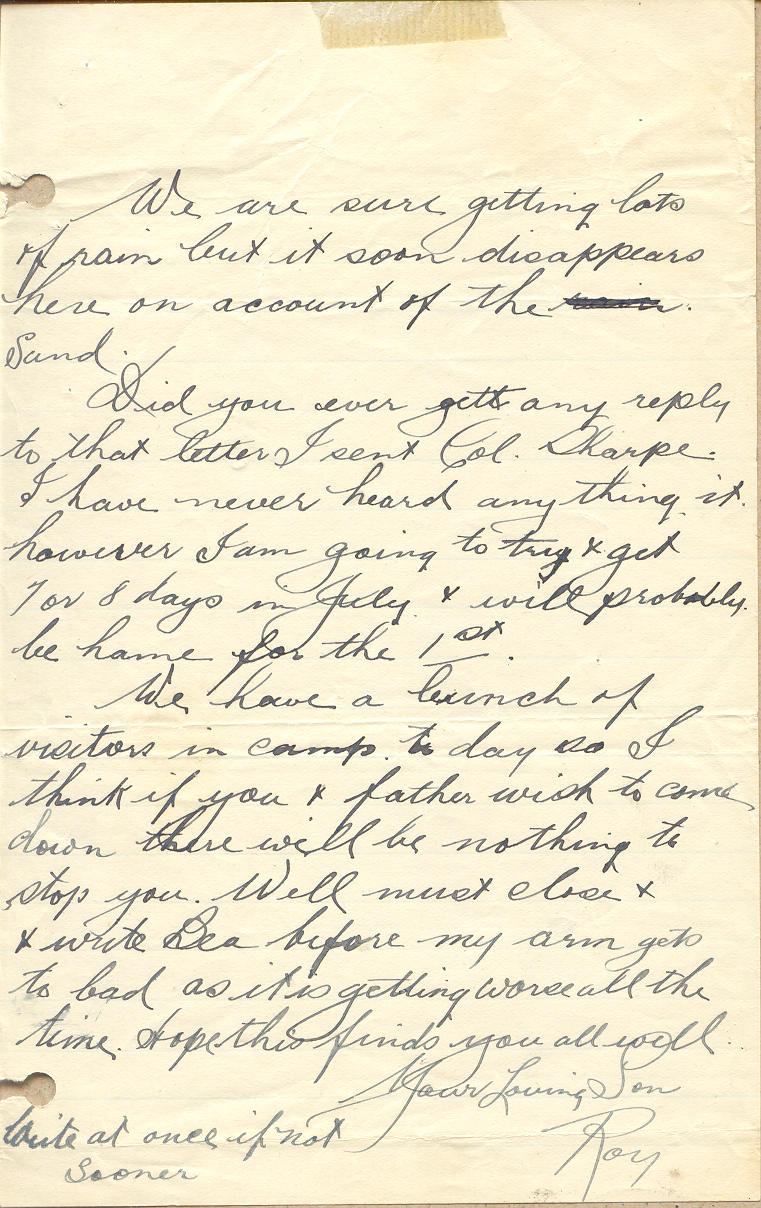 We are sure getting lots
of rain but it soon disappears
here on account of the rain.
Sand.
Did you ever gett any reply
to that letter I sent Col. Sharpe.
I have never heard any thing it.
however I am going to try & get
7 or 8 days in July & will probably.
be home for the 1st.
We have a bunch of
visitors in camp to day so I
think if you & father wish to come
down there will be nothing to
stop you. Well must close &
& write Bea before my arm gets
to bad as it is getting worse all the
time. Hope this finds you all well.
Your Loving Son
Roy
Write at once if not
Sooner